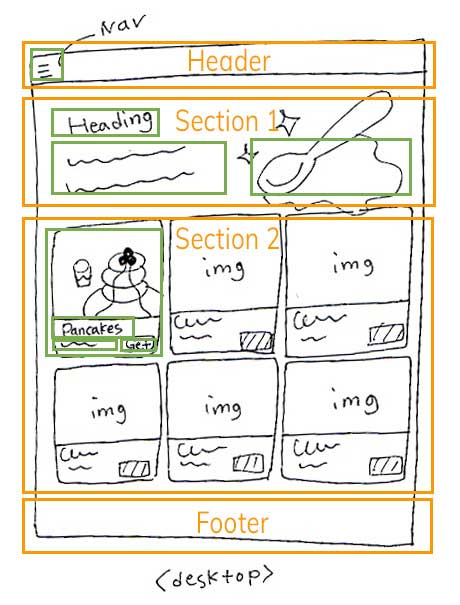 Nav
Header
Heading
Section 1
Section 2
img
img
Pancakes
Get
img
img
img
Footer
<desktop>